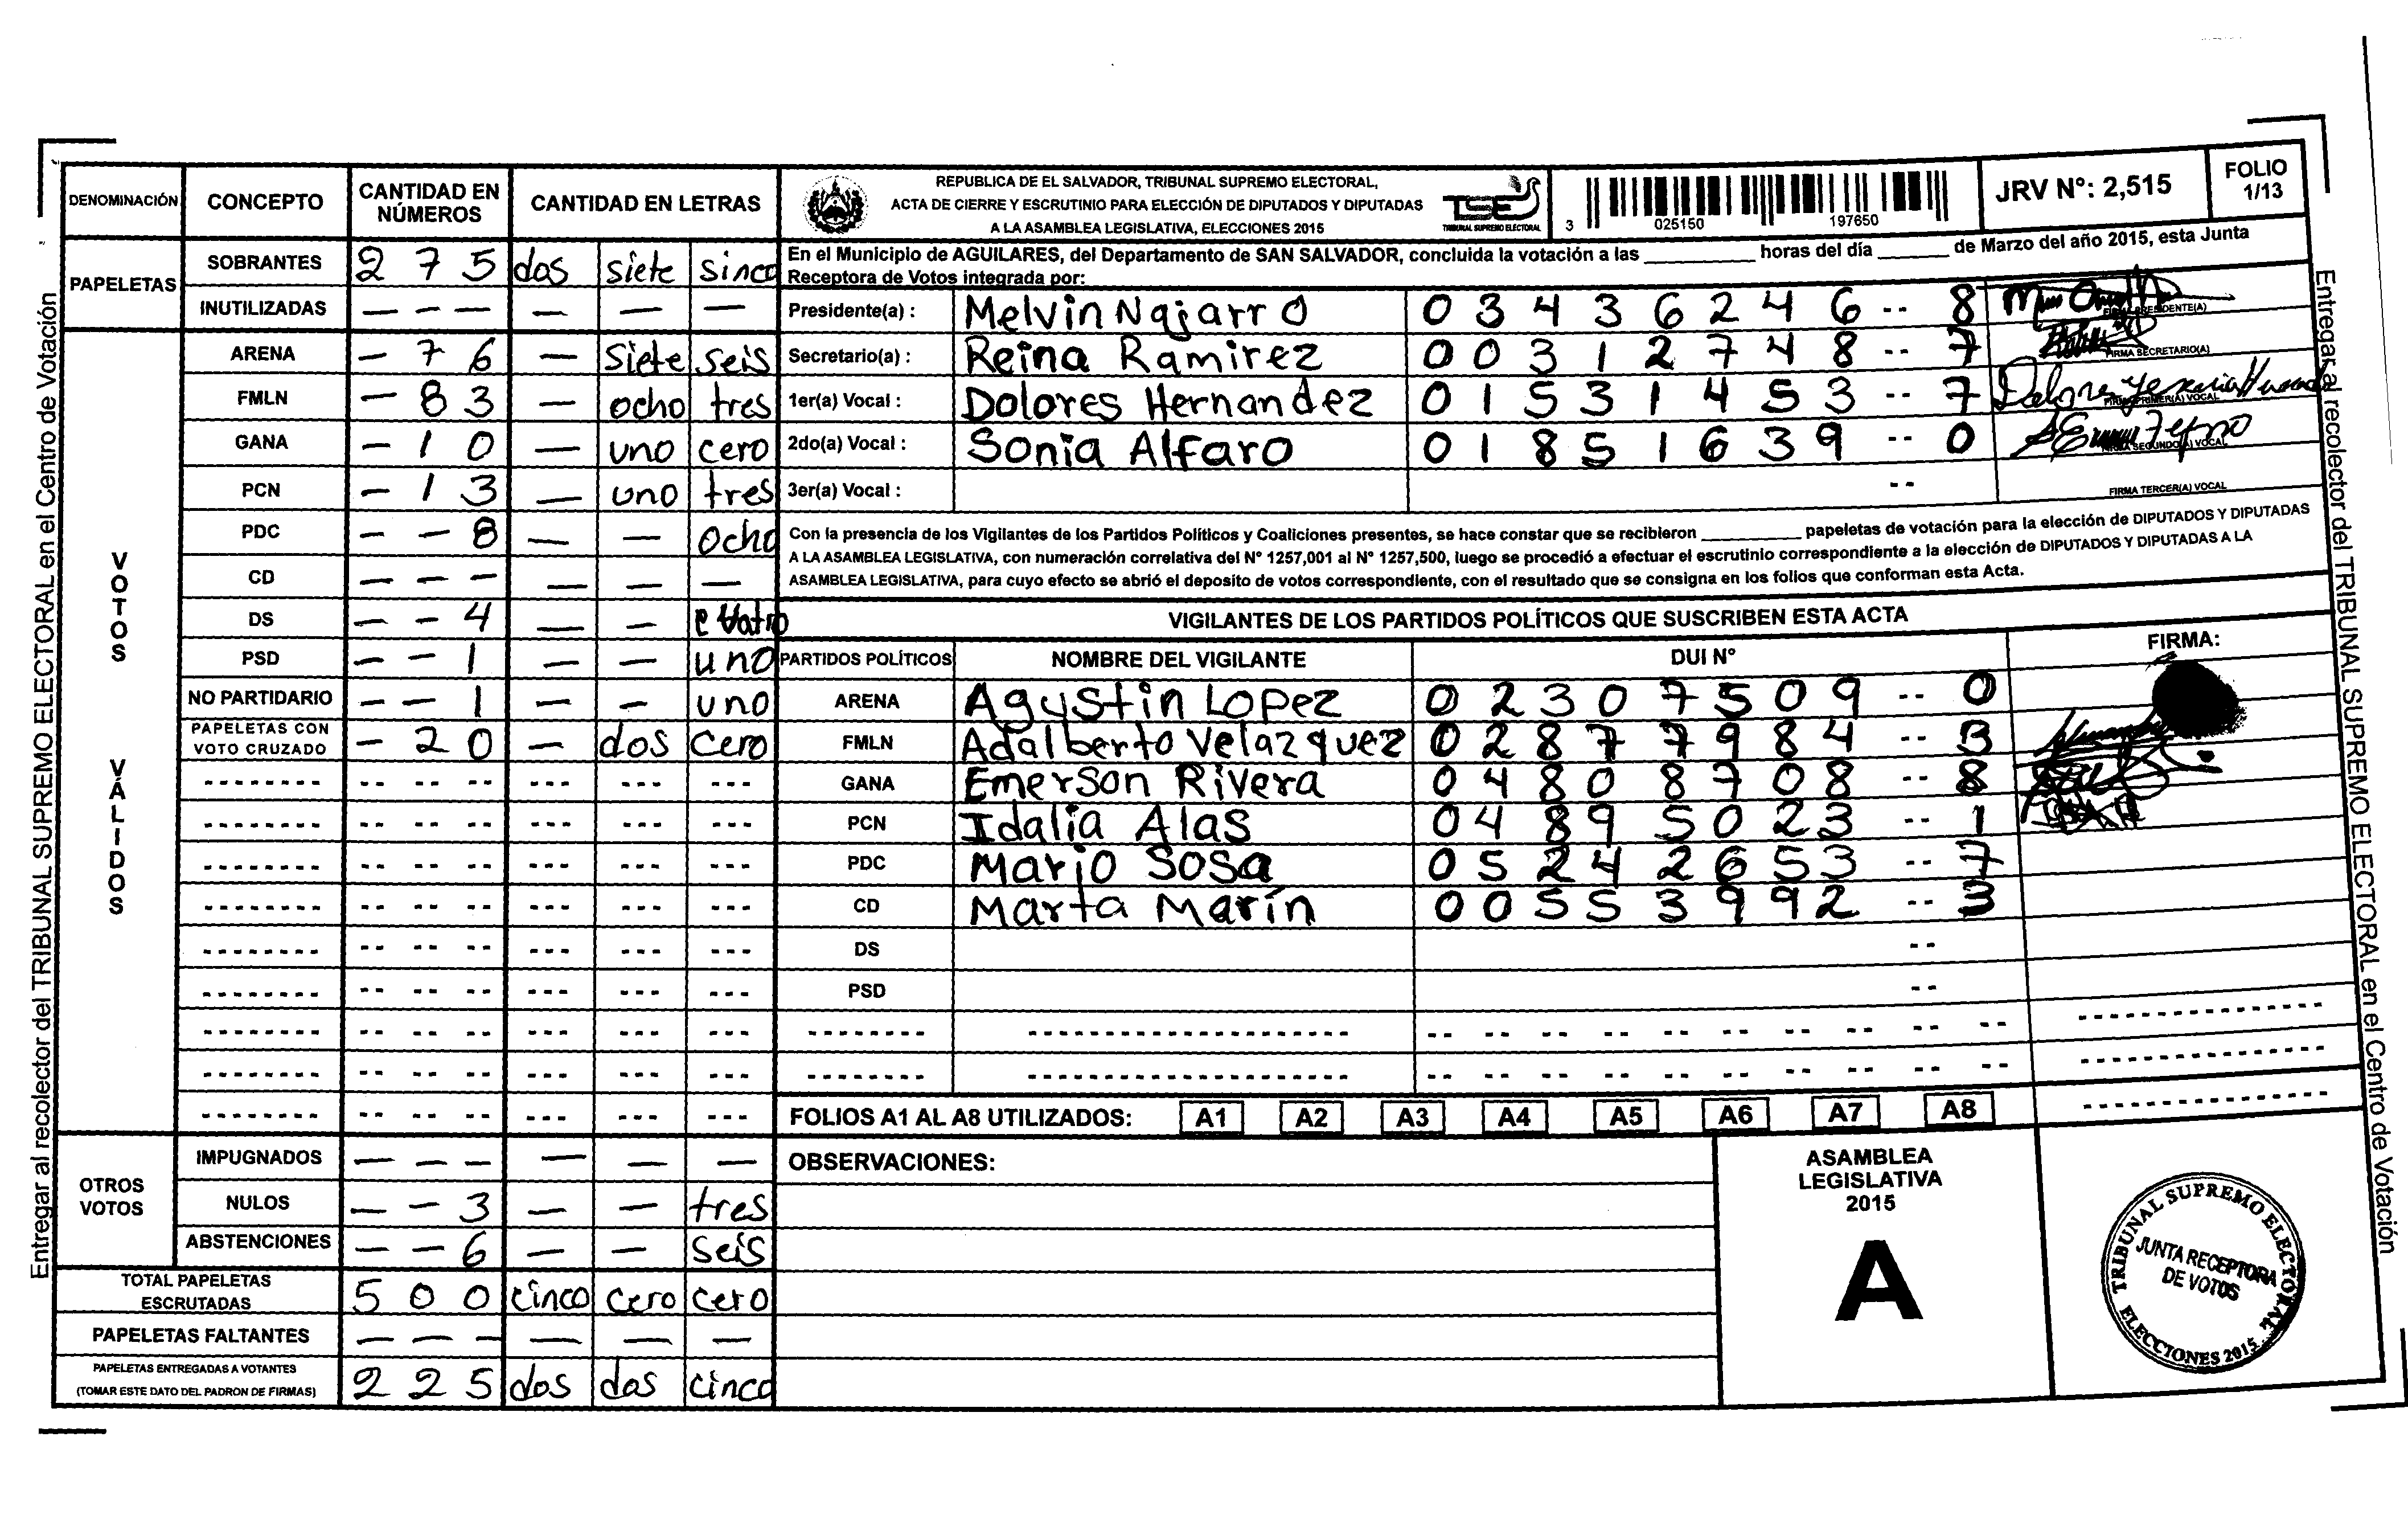 DENOMINACIÓN CONCEPTO CANTIDAD EN NÚMEROS CANTIDAD EN LETRAS
PAPELETAS
SOBRANTES 2 7 5 dos siete sinco
INUTILIZADAS — — — — — —
VOTOS VÁLIDOS
ARENA — 7 6 — siete seis
FMLN — 8 3 — ocho tres
GANA — 1 0 — uno cero
PCN — 1 3 — uno tres
PDC — — 8 — — ocho
CD — — — — — —
DS — — 4 — — cuatro
PSD — — 1 — — uno
NO PARTIDARIO — — 1 — — uno
PAPELETAS CON VOTO CRUZADO — 2 0 — dos cero
OTROS VOTOS
IMPUGNADOS — — — — — —
NULOS — — 3 — — tres
ABSTENCIONES — — 6 — — seis
TOTAL PAPELETAS ESCRUTADAS 5 0 0 cinco cero cero
PAPELETAS FALTANTES — — — — — —
PAPELETAS ENTREGADAS A VOTANTES (TOMAR ESTE DATO DEL PADRON DE FIRMAS) 2 2 5 dos dos cinco
REPUBLICA DE EL SALVADOR, TRIBUNAL SUPREMO ELECTORAL,
ACTA DE CIERRE Y ESCRUTINIO PARA ELECCIÓN DE DIPUTADOS Y DIPUTADAS
A LA ASAMBLEA LEGISLATIVA, ELECCIONES 2015
TSE
TRIBUNAL SUPREMO ELECTORAL
3 025150 197650
JRV N°: 2,515
FOLIO 1/13
En el Municipio de AGUILARES, del Departamento de SAN SALVADOR, concluida la votación a las ______ horas del día ______ de Marzo del año 2015, esta Junta
Receptora de Votos integrada por:
Presidente(a) : Melvin Najarro 0 3 4 3 6 2 4 6 -- 8
Secretario(a) : Reina Ramirez 0 0 3 1 2 7 4 8 -- 7 FIRMA SECRETARIO(A)
1er(a) Vocal : Dolores Hernandez 0 1 5 3 1 4 5 3 -- 7 FIRMA PRIMER(A) VOCAL
2do(a) Vocal : Sonia Alfaro 0 1 8 5 1 6 3 9 -- 0 FIRMA SEGUNDO(A) VOCAL
3er(a) Vocal : -- FIRMA TERCER(A) VOCAL
Con la presencia de los Vigilantes de los Partidos Políticos y Coaliciones presentes, se hace constar que se recibieron ______ papeletas de votación para la elección de DIPUTADOS Y DIPUTADAS
A LA ASAMBLEA LEGISLATIVA, con numeración correlativa del N° 1257,001 al N° 1257,500, luego se procedió a efectuar el escrutinio correspondiente a la elección de DIPUTADOS Y DIPUTADAS A LA
ASAMBLEA LEGISLATIVA, para cuyo efecto se abrió el deposito de votos correspondiente, con el resultado que se consigna en los folios que conforman esta Acta.
VIGILANTES DE LOS PARTIDOS POLÍTICOS QUE SUSCRIBEN ESTA ACTA
PARTIDOS POLÍTICOS NOMBRE DEL VIGILANTE DUI N° FIRMA:
ARENA Agustin Lopez 0 2 3 0 7 5 0 9 -- 0
FMLN Adalberto Velazquez 0 2 8 7 7 9 8 4 -- 3
GANA Emerson Rivera 0 4 8 0 8 7 0 8 -- 8
PCN Idalia Alas 0 4 8 9 5 0 2 3 -- 1
PDC Mario Sosa 0 5 2 4 2 6 5 3 -- 7
CD Marta Marín 0 0 5 5 3 9 9 2 -- 3
DS --
PSD --
FOLIOS A1 AL A8 UTILIZADOS: A1 A2 A3 A4 A5 A6 A7 A8
OBSERVACIONES:
ASAMBLEA
LEGISLATIVA
2015
A
TRIBUNAL SUPREMO ELECTORAL
JUNTA RECEPTORA
DE VOTOS
ELECCIONES 2015
Entregar al recolector del TRIBUNAL SUPREMO ELECTORAL en el Centro de Votación
Entregar al recolector del TRIBUNAL SUPREMO ELECTORAL en el Centro de Votación